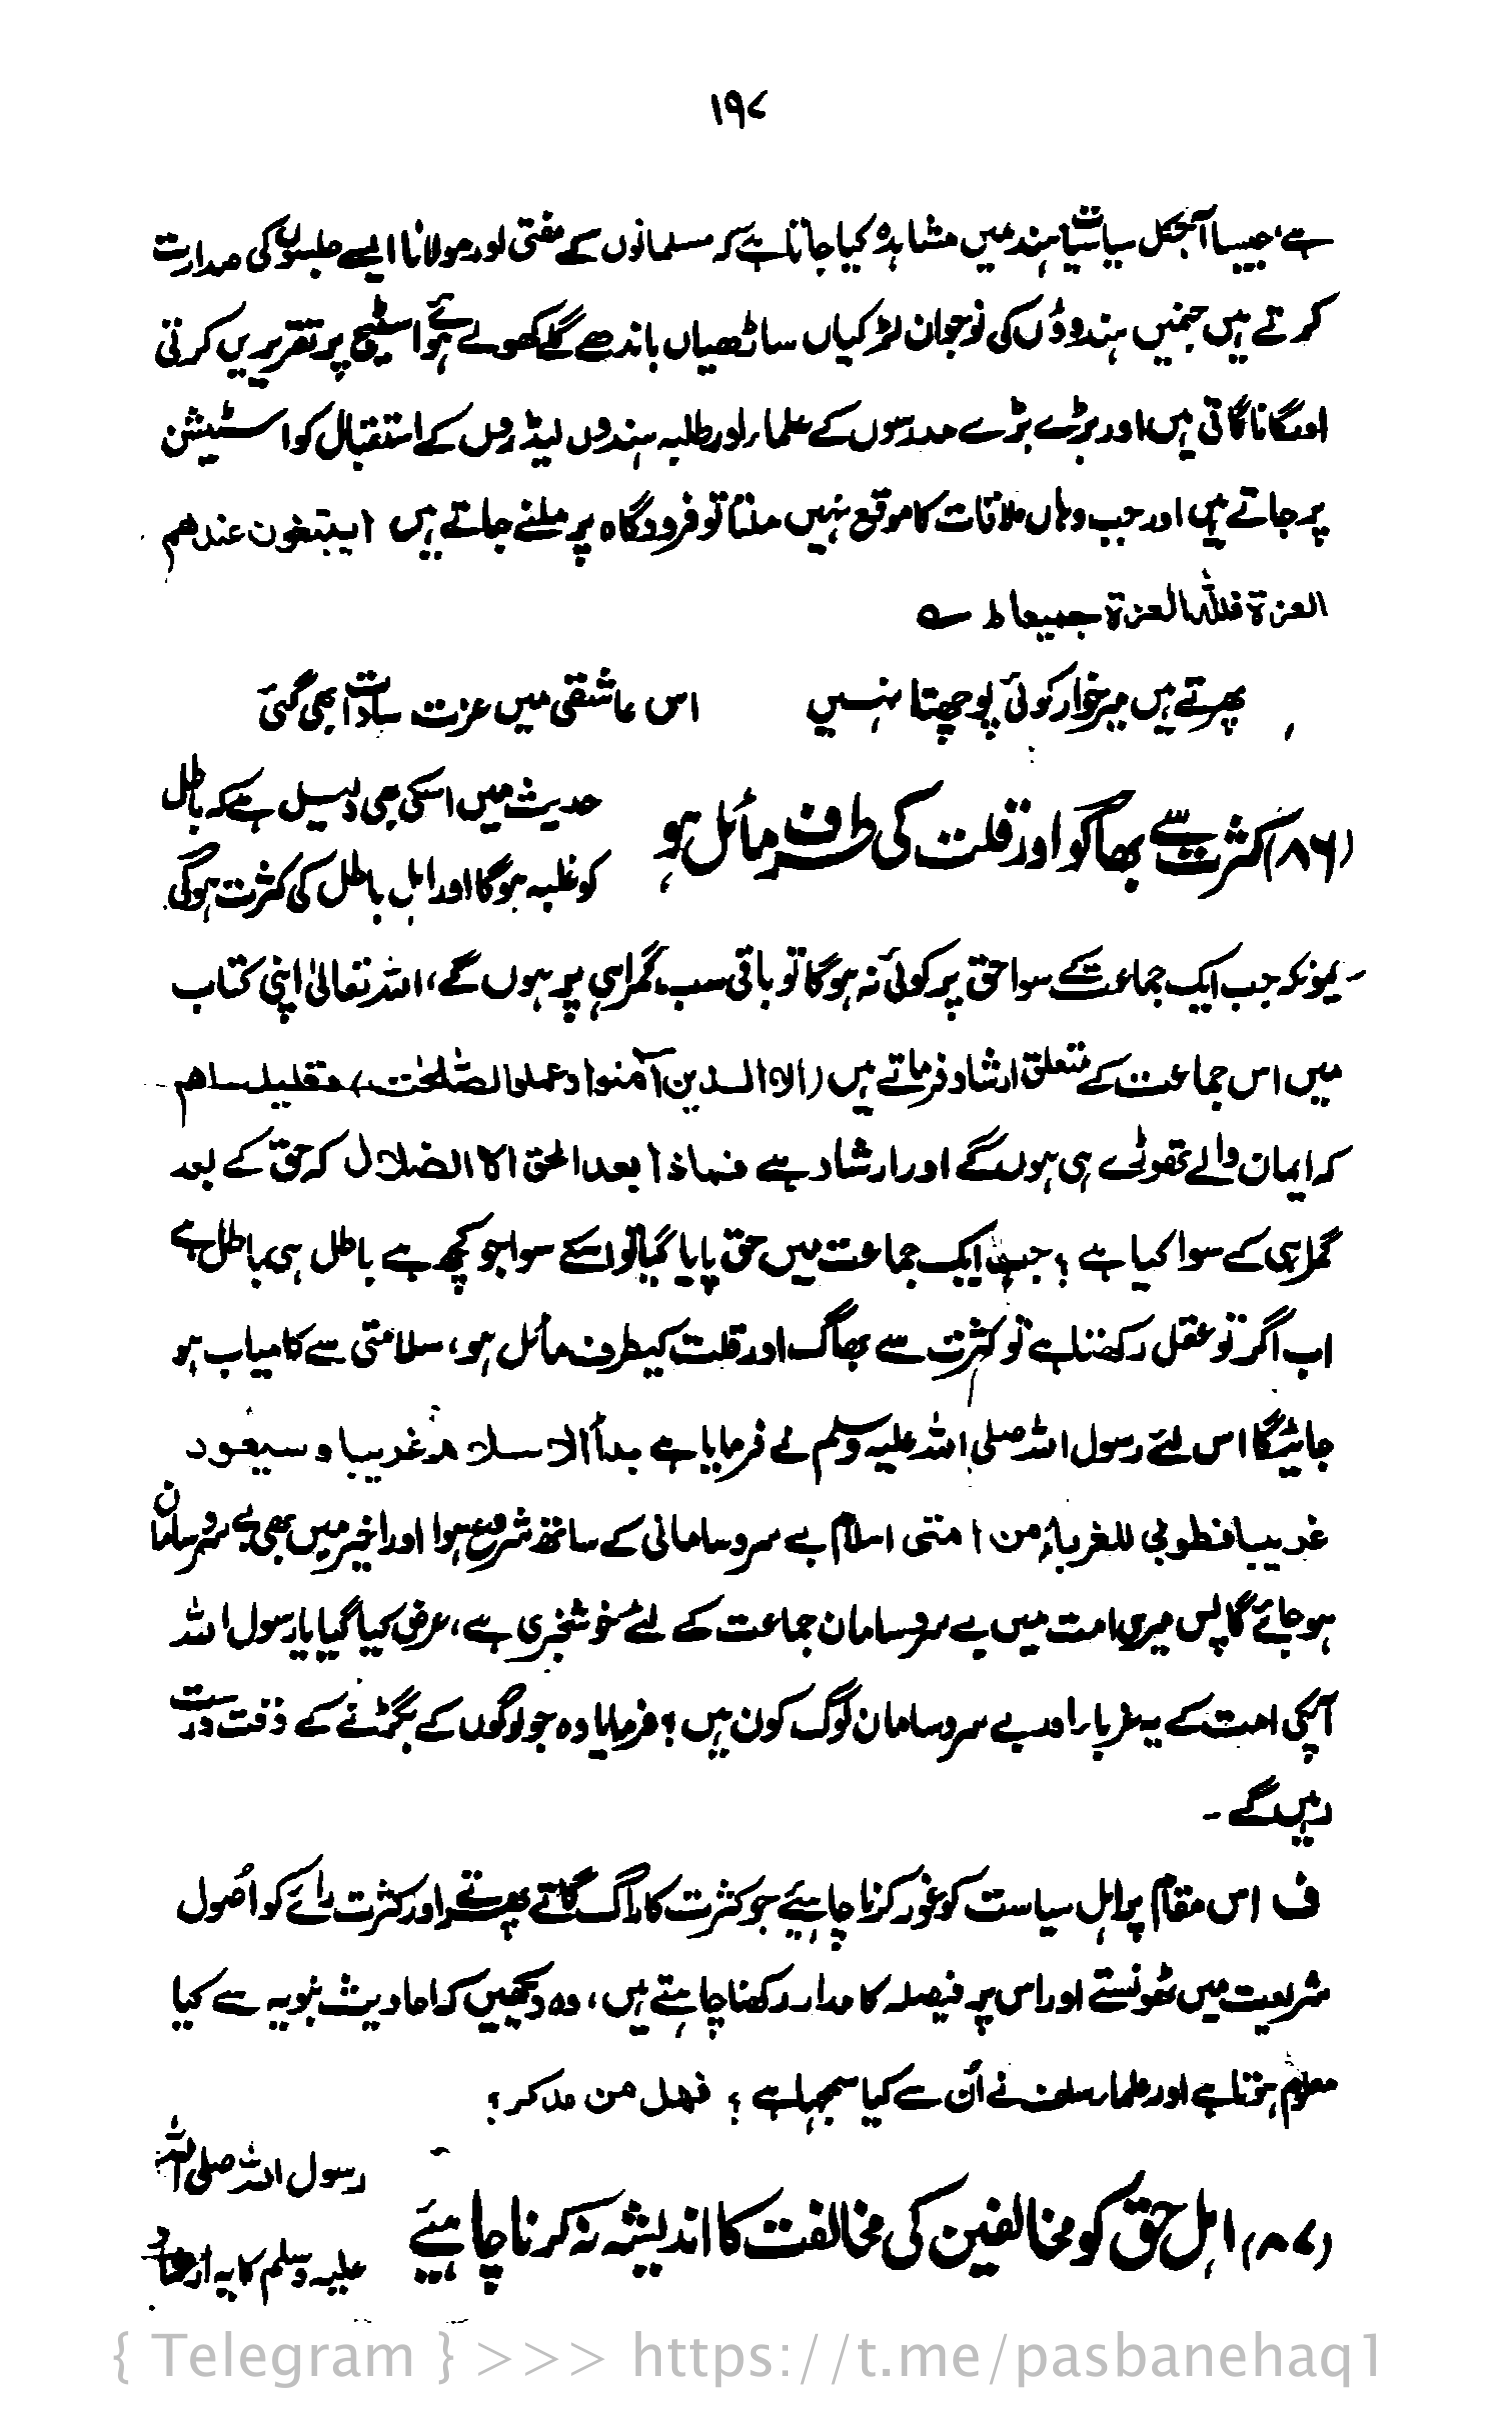 ۱۹۷
ہے، جیسا آجکل سیاسیات ہند میں مشاہدہ کیا جاتا ہے کہ مسلمانوں کے مفتی اور مولانا ایسے جلسوں کی صدارت
کرتے ہیں جنمیں ہندوؤں کی نوجوان لڑکیاں ساڑھیاں باندھے گلے کھولے ہوئے اسٹیج پر تقریریں کرتی
اور گانا گاتی ہیں اور بڑے بڑے مدرسوں کے علماء اور طلبہ ہندو لیڈروں کے استقبال کو اسٹیشن
پر جاتے ہیں اور جب وہاں ملاقات کا موقع نہیں ملتا تو فرودگاہ پر ملنے جاتے ہیں ایبتغون عندھم
العزة فللہ العزة جمیعا ط ے
پھرتے ہیں میر خوار کوئی پوچھتا نہیں اس عاشقی میں عزت سادات بھی گئی
(۸۶) کثرت سے بھاگو اور قلت کی طرف مائل ہو حدیث میں اسکی بھی دلیل ہے کہ باطل
کو غلبہ ہوگا اور اہل باطل کی کثرت ہوگی
کیونکہ جب ایک جماعت کے سوا حق پر کوئی نہ ہوگا تو باقی سب گمراہی پر ہوں گے، اللہ تعالیٰ اپنی کتاب
میں اس جماعت کے متعلق ارشاد فرماتے ہیں (الا الذین آمنوا وعملوا الصّٰلحٰت) وقلیل ماھم
کہ ایمان والے تھوڑے ہی ہوں گے اور ارشاد ہے فماذا بعد الحق الا الضلال کہ حق کے بعد
گمراہی کے سوا کیا ہے ؟ جب ایک جماعت میں حق پایا گیا تو اسکے سوا جو کچھ ہے باطل ہی باطل ہے
اب اگر تو عقل رکھتا ہے تو کثرت سے بھاگ اور قلت کیطرف مائل ہو، سلامتی سے کامیاب ہو
جائیگا اس لئے رسول اللہ صلی اللہ علیہ وسلم نے فرمایا ہے بدأ الاسلام غریبا و سیعود
غریبا فطوبی للغرباء من امتی اسلام بے سروسامانی کے ساتھ شروع ہوا اور اخیر میں بھی بے سروسامان
ہو جائے گا پس میری امت میں بے سروسامان جماعت کے لئے خوشخبری ہے، عرض کیا گیا یا رسول اللہ
آپکی امت کے یہ غرباء اور بے سروسامان لوگ کون ہیں ؟ فرمایا وہ جو لوگوں کے بگڑنے کے وقت درست
رہیں گے ۔
ف اس مقام پر اہل سیاست کو غور کرنا چاہیئے جو کثرت کا راگ گاتے پھرتے اور کثرت رائے کو اصول
شریعت میں ٹھونستے اور اس پر فیصلہ کا مدار رکھنا چاہتے ہیں، وہ دیکھیں کہ احادیث نبویہ سے کیا
معلوم ہوتا ہے اور علماء سلف نے اُن سے کیا سمجھا ہے ؟ فھل من مدکر ؟
(۸۷) اہل حق کو مخالفین کی مخالفت کا اندیشہ نہ کرنا چاہیئے رسول اللہ صلی اللہ
علیہ وسلم کا یہ ارشاد
{ Telegram } >>> https://t.me/pasbanehaq1